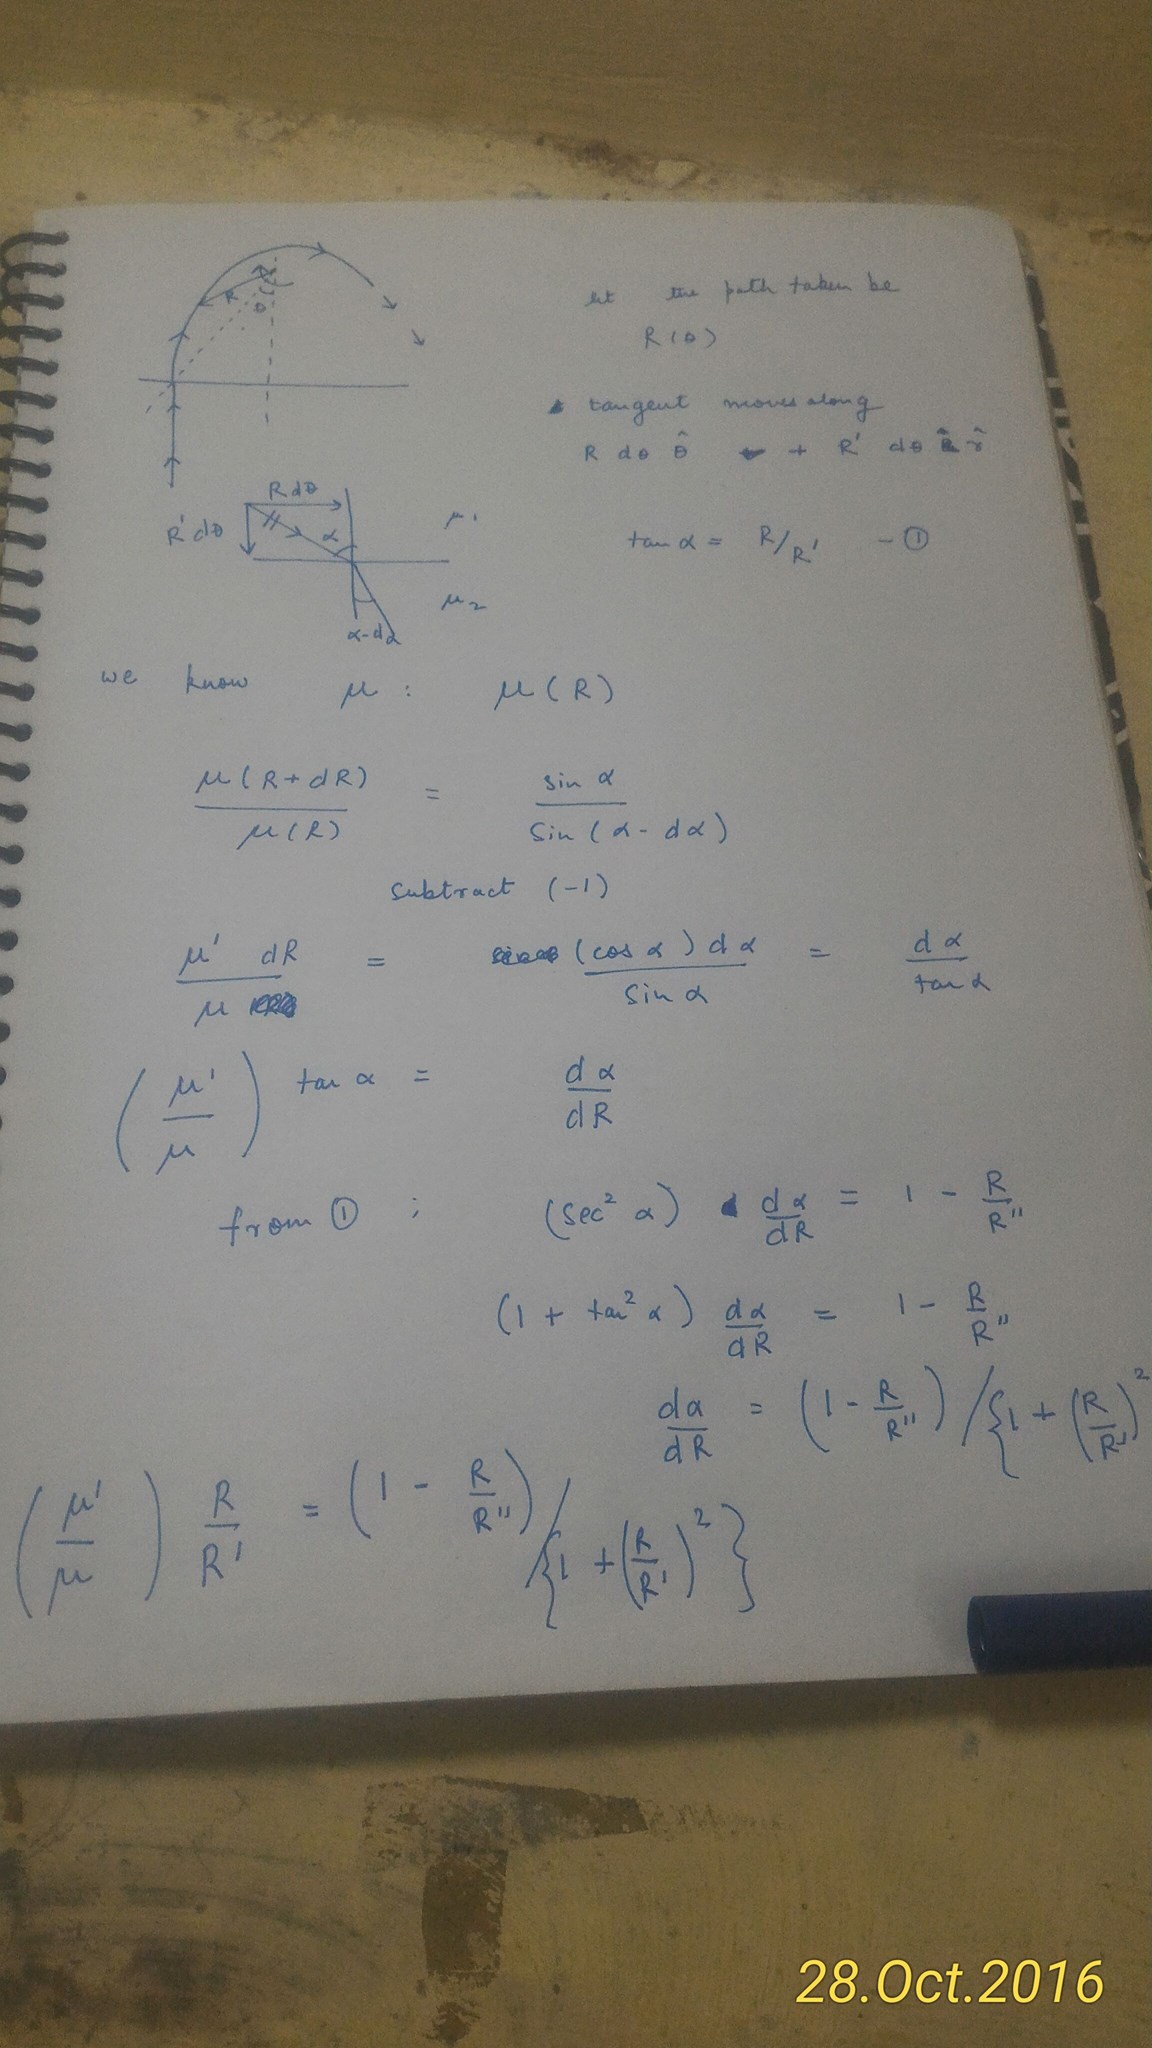 R
θ
let the path taken be
R(θ)
tangent moves along
R dθ θ̂ + R' dθ r̂
R dθ
R' dθ
α
μ₁
μ₂
α-dα
tan α = R/R' - ①
we know μ : μ(R)
μ(R+dR)/μ(R) = sin α/sin(α-dα)
subtract (-1)
μ' dR/μ = (cos α) dα/sin α = dα/tan α
(μ'/μ) tan α = dα/dR
from ① ; (sec² α) dα/dR = 1 - R/R''
(1 + tan² α) dα/dR = 1 - R/R''
dα/dR = (1 - R/R'') / {1 + (R/R')²
(μ'/μ) R/R' = (1 - R/R'') / {1 + (R/R')²}
28.Oct.2016